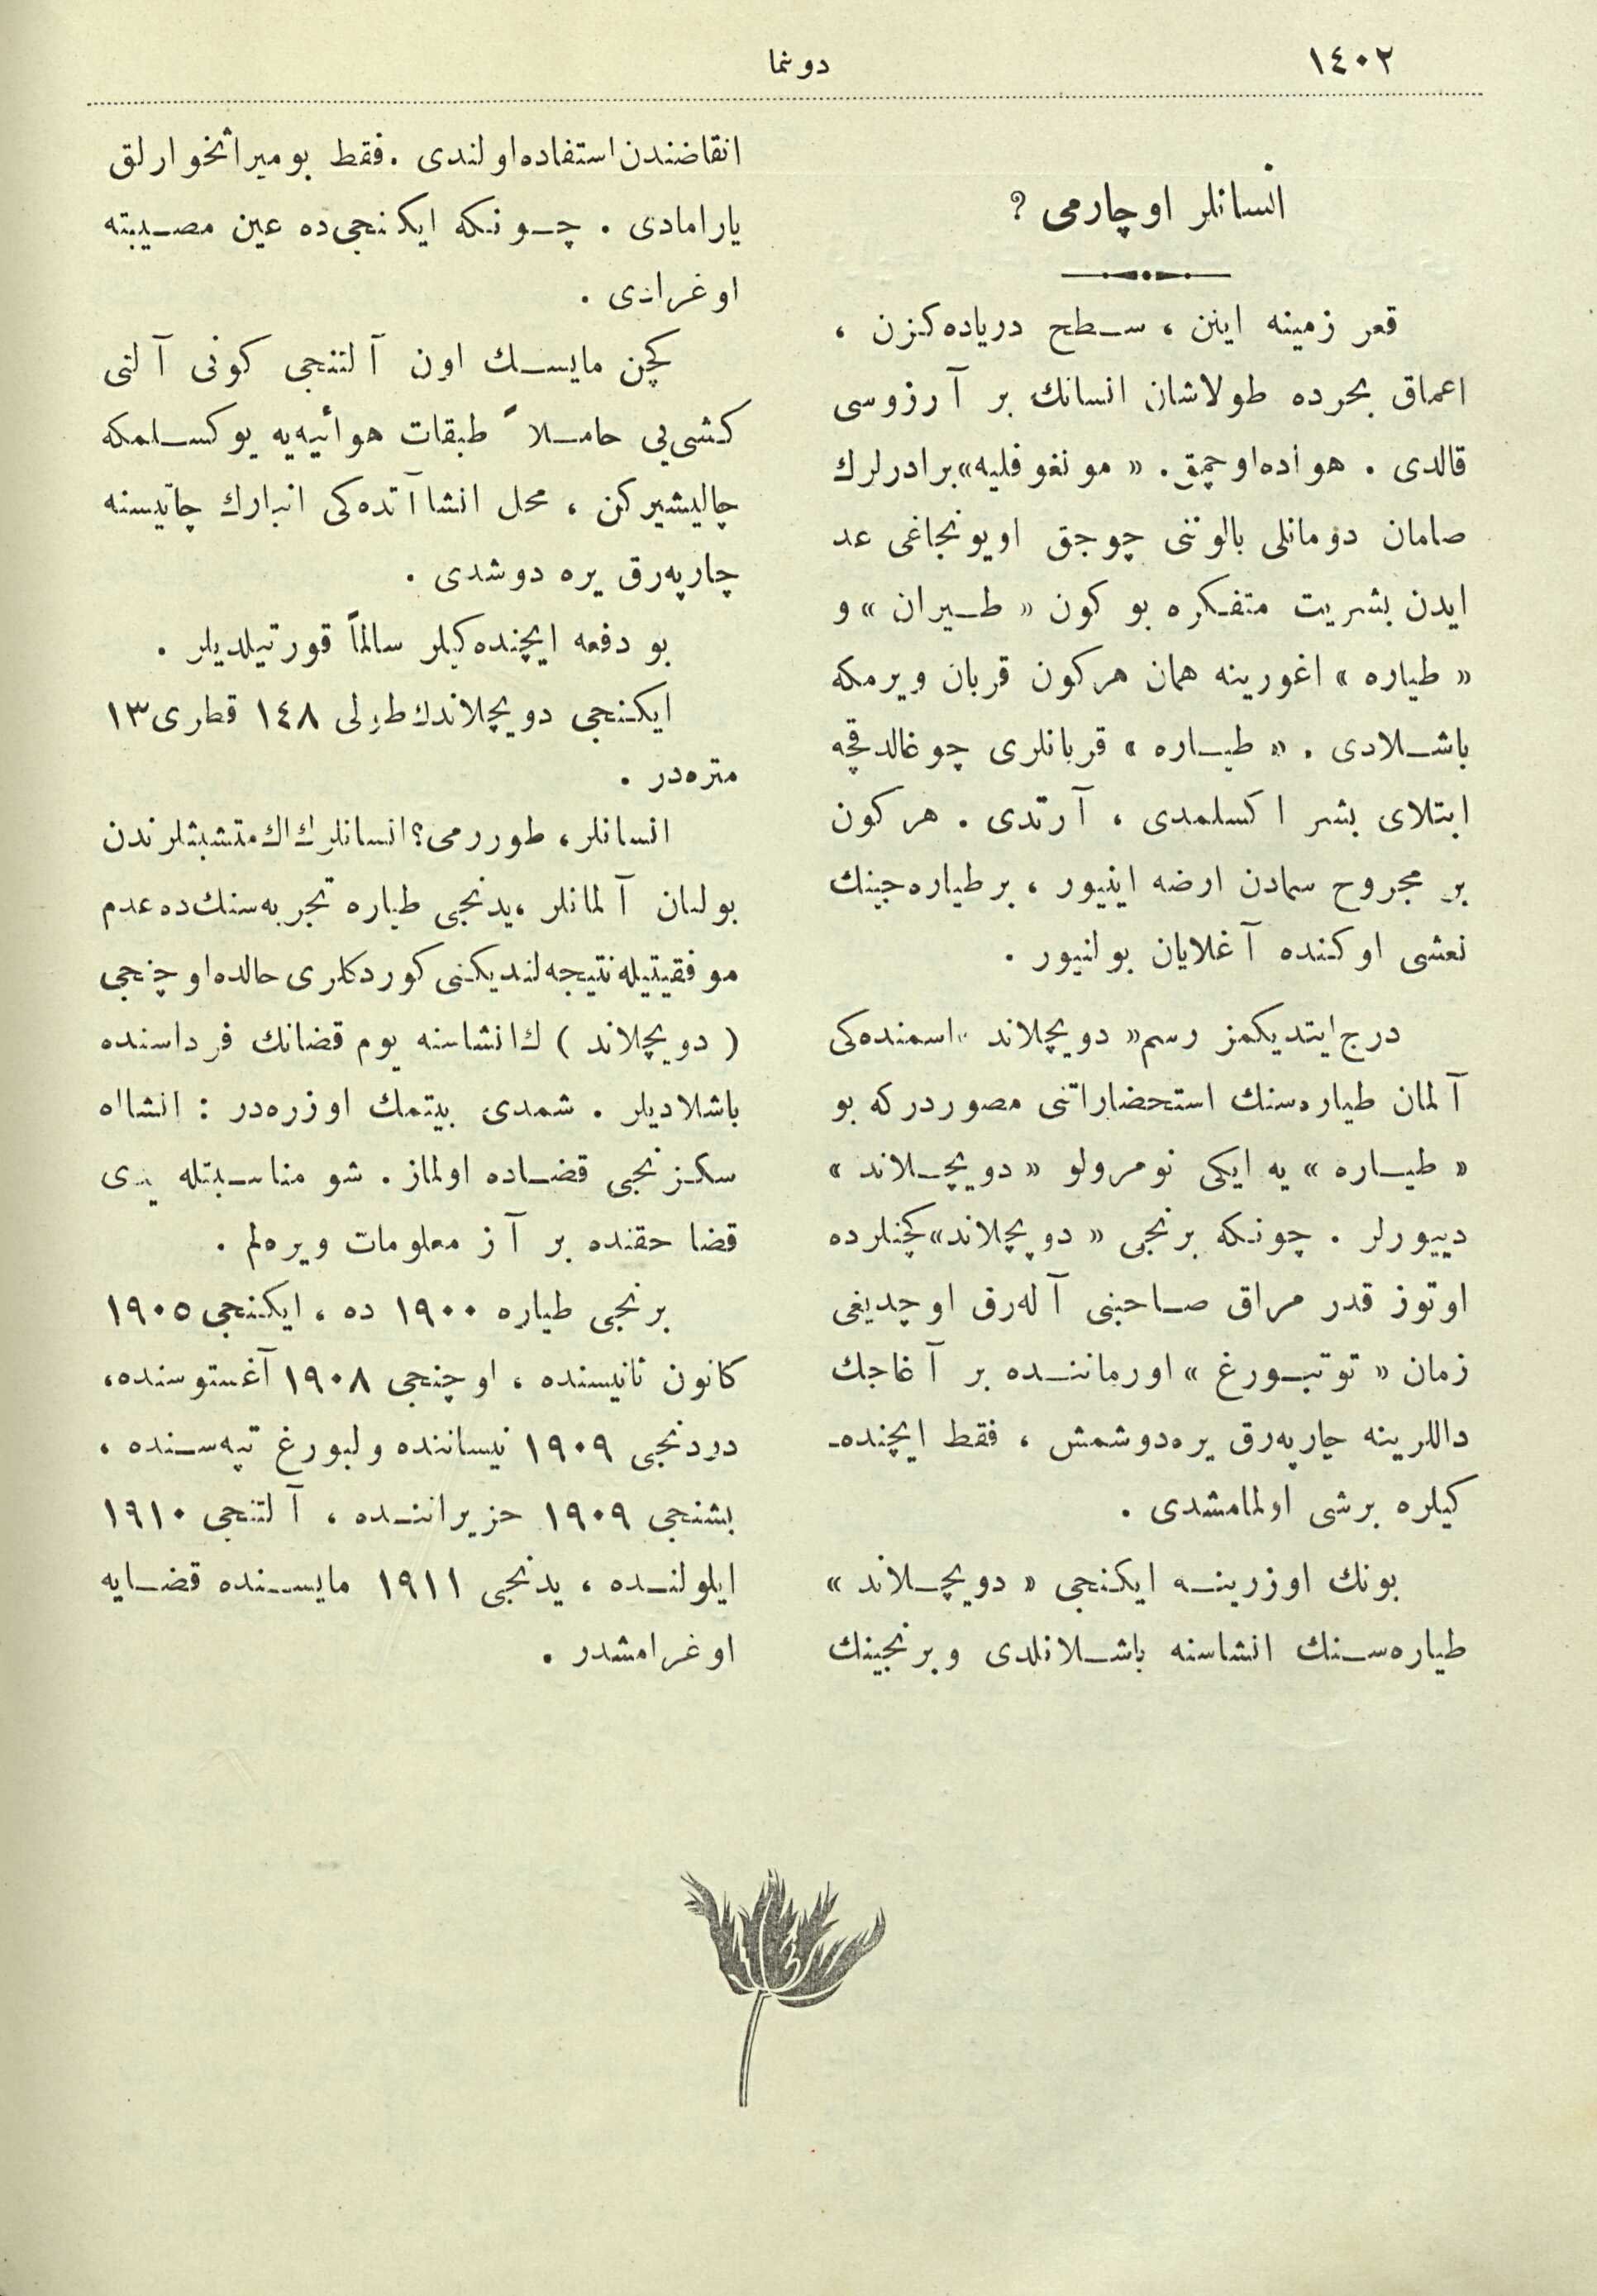 ١٤٠٢
دونما
انسانلر اوچارمی ?
قعر زمینه اینن ، سطح دریاده‌كزن ،
اعماق بحرده طولاشان انسانك بر آرزوسی
قالدی . هواده‌اوچمق. « مونغوفلیه»برادرلرك
صامان دومانلی بالوننی چوجق اویونجاغی عد
ایدن بشریت متفكره بو كون « طیران » و
« طیاره » اغورینه همان هركون قربان ویرمكه
باشلادی . « طیاره » قربانلری چوغالدقچه
ابتلای بشر اكسلمدی ، آرتدی . هركون
بر مجروح سمادن ارضه اینیور ، برطیاره‌جینك
نعشی اوكنده آغلایان بولنیور .
درج‌ایتدیكمز رسم« دویچلاند »اسمنده‌كی
آلمان طیاره‌سنك استحضاراتنی مصوردركه بو
« طیاره » یه ایكی نومرولو « دویچلاند »
دییورلر . چونكه برنجی « دویچلاند»كچنلرده
اوتوز قدر مراق صاحبنی آله‌رق اوچدیغی
زمان « توتبورغ » اورماننده بر آغاجك
داللرینه چارپه‌رق یره‌دوشمش ، فقط ایچنده-
كیلره برشی اولمامشدی .
بونك اوزرینه ایكنجی « دویچلاند »
طیاره‌سنك انشاسنه باشلانلدی و برنجینك
انقاضندن‌استفاده‌اولندی .فقط بومیراثخوارلق
یارامادی . چونكه ایكنجی‌ده عین مصیبته
اوغرادی .
كچن مایسك اون آلتنجی كونی آلتی
كشی‌یی حاملاً طبقات هوائیه‌یه یوكسلمكه
چالیشیركن ، محل انشاآتده‌كی انبارك چاتیسنه
چارپه‌رق یره دوشدی .
بو دفعه ایچنده‌كیلر سالماً قورتیلدیلر .
ایكنجی دویچلاندك طولی ١٤٨ قطری ١٣
متره‌در .
انسانلر، طوررمی؟ انسانلرك اك متشبثلرندن
بولنان آلمانلر ،یدنجی طیاره تجربه‌سنك‌ده عدم
موفقیتیله نتیجه‌لندیكنی كوردكلری حالده‌اوچنجی
( دویچلاند ) ك‌انشاسنه یوم قضانك فرداسنده
باشلادیلر . شمدی بیتمك اوزره‌در : انشااه
سكزنجی قضاده اولماز . شو مناسبتله یدی
قضا حقنده بر آز معلومات ویره‌لم .
برنجی طیاره ١٩٠٠ ده ، ایكنجی ١٩٠٥
كانون ثانیسنده ، اوچنجی ١٩٠٨ آغستوسنده،
دردنجی ١٩٠٩ نیساننده ولبورغ تپه‌سنده ،
بشنجی ١٩٠٩ حزیراننده ، آلتنجی ١٩١٠
ایلولنده ، یدنجی ١٩١١ مایسنده قضایه
اوغرامشدر .